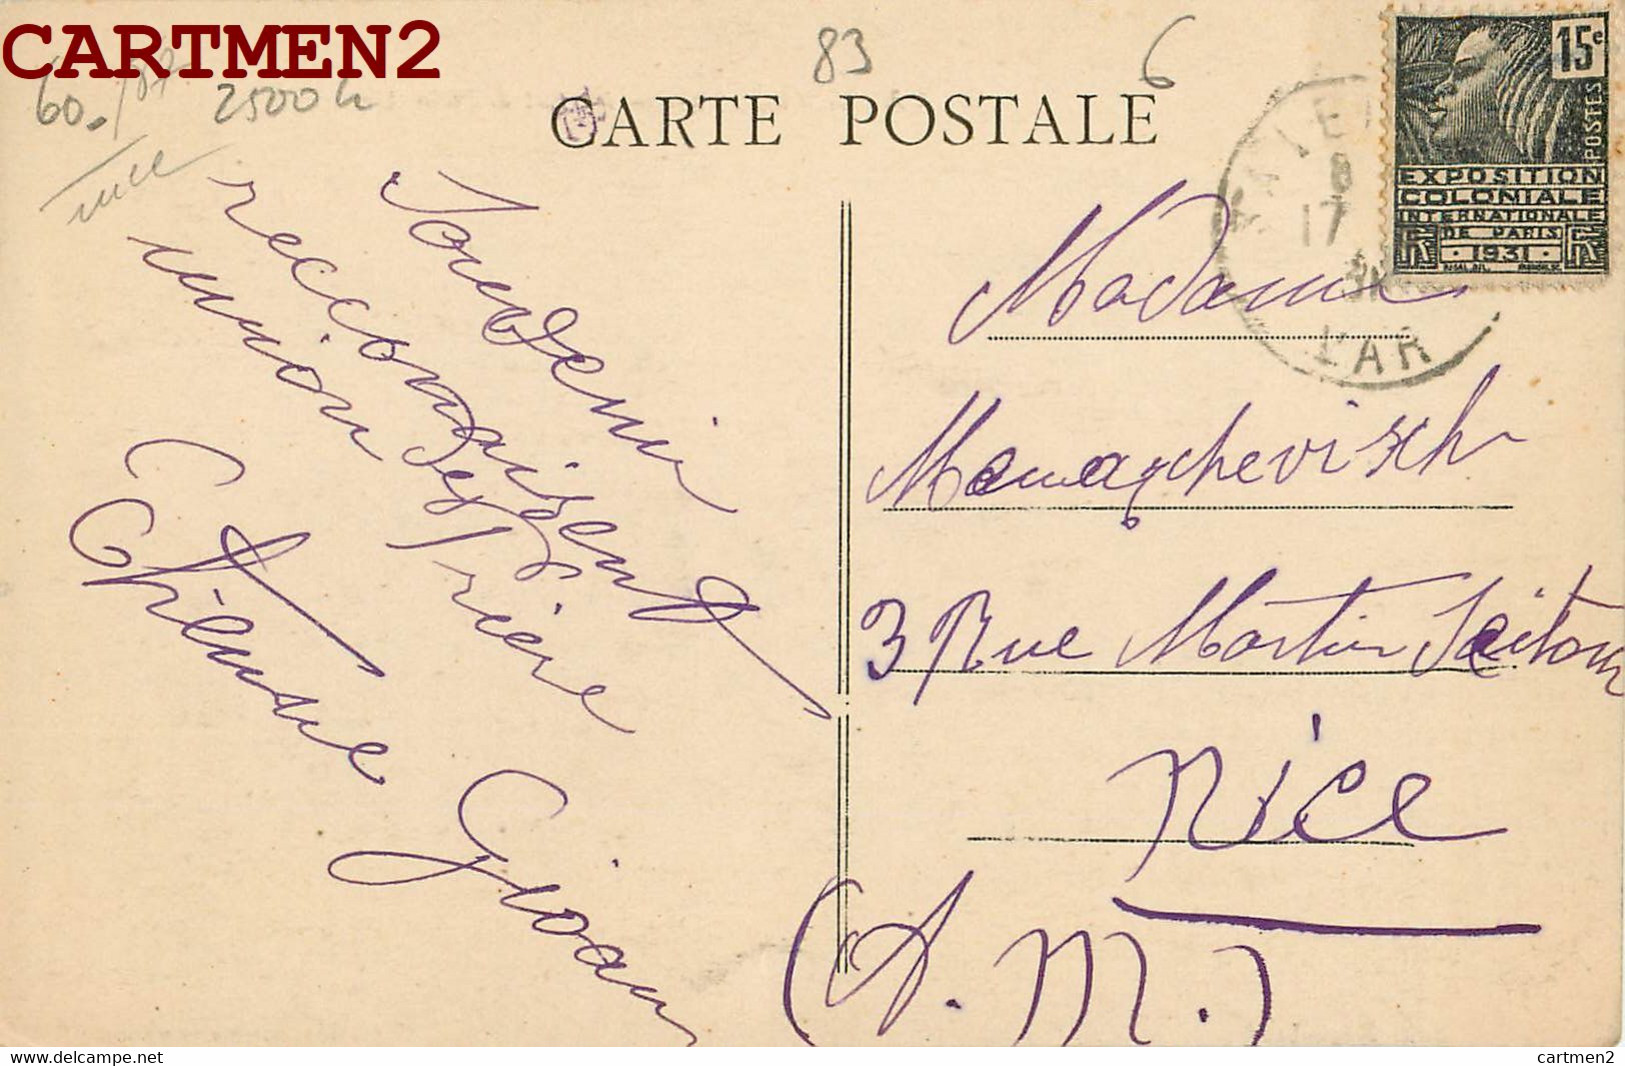 CARTMEN2
83
6
60.
2500
CARTE POSTALE
15c
POSTES
EXPOSITION
COLONIALE
INTERNATIONALE
DE PARIS
RF 1931 RF
8
17
VAR
Souvenir
reconnaissent
union de Prière
Etienne Gioan
Madame
3 Rue Martin Seitour
Nice
(A. M.)
https://www.delcampe.net
cartmen2